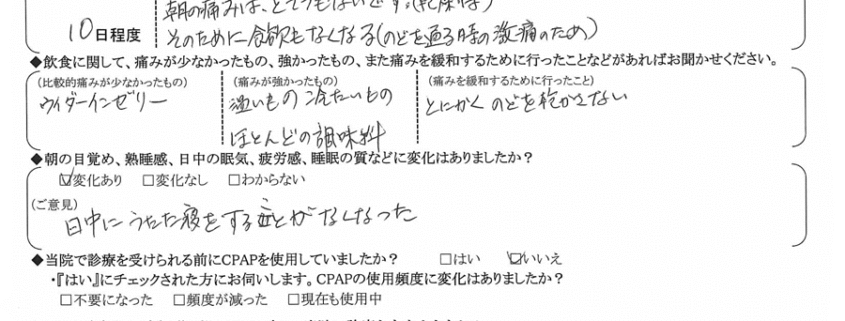 朝の痛みは、とてつもないです。(乾燥時)
10日程度
そのために食欲もなくなる(のどを通る時の激痛のため)
◆飲食に関して、痛みが少なかったもの、強かったもの、また痛みを緩和するために行ったことなどがあればお聞かせください。
(比較的痛みが少なかったもの) (痛みが強かったもの) (痛みを緩和するために行ったこと)
ウイダーインゼリー 温いもの 冷たいもの とにかくのどを乾かさない
ほとんどの調味料
◆朝の目覚め、熟睡感、日中の眠気、疲労感、睡眠の質などに変化はありましたか?
☑変化あり □変化なし □わからない
(ご意見)
日中にうたた寝をすることがなくなった
◆当院で診療を受けられる前にCPAPを使用していましたか? □はい ☑いいえ
・『はい』にチェックされた方にお伺いします。CPAPの使用頻度に変化はありましたか?
□不要になった □頻度が減った □現在も使用中